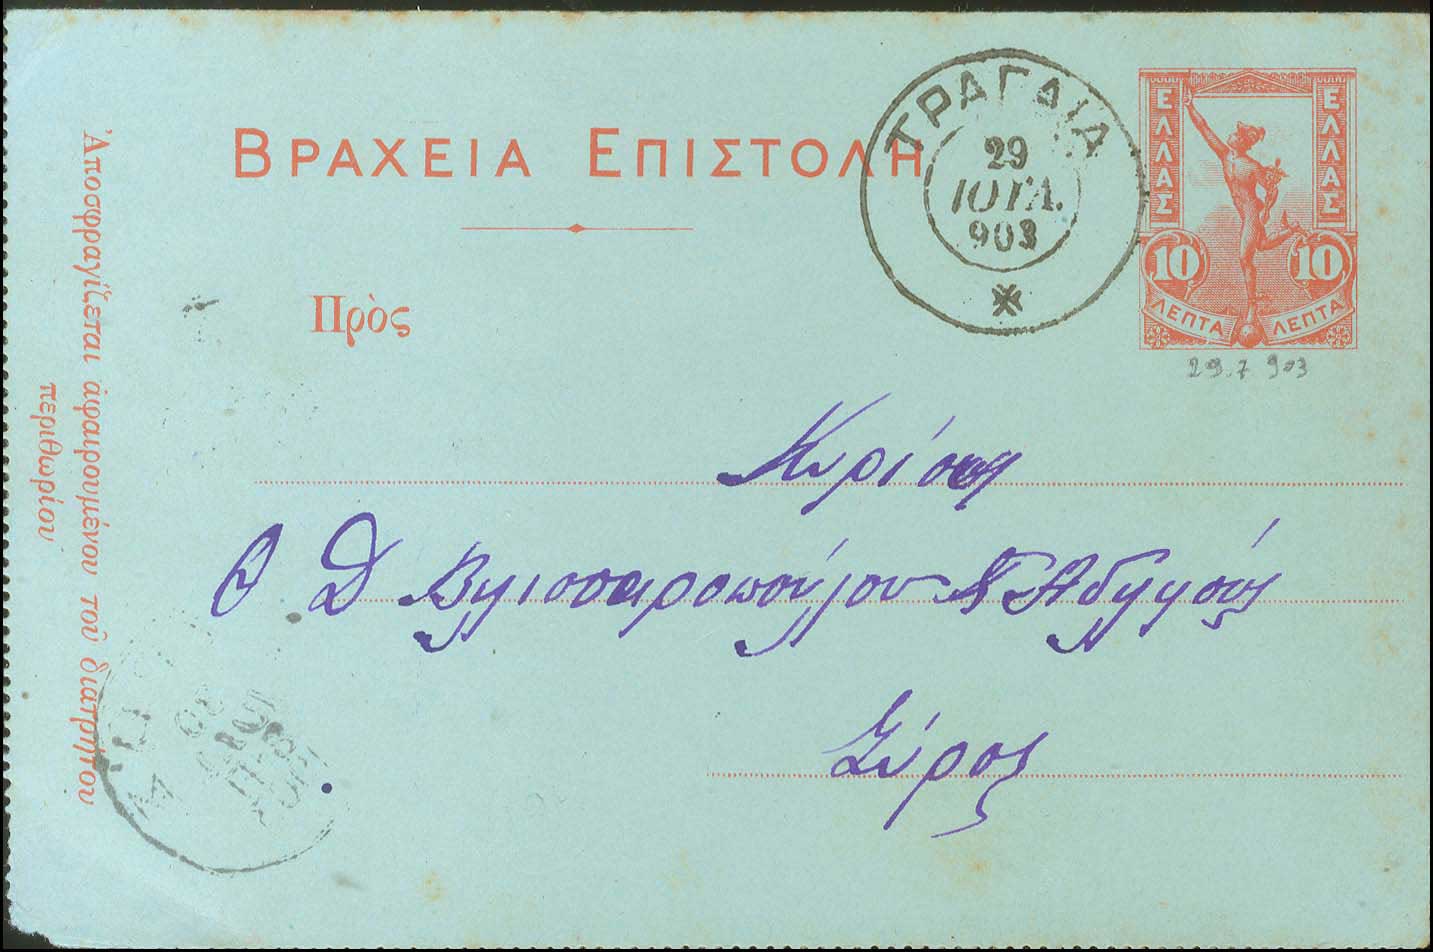 ΒΡΑΧΕΙΑ ΕΠΙΣΤΟΛΗ
ΤΡΑΓΑΙΑ
29
ΙΟΥΛ.
903
ΕΛΛΑΣ ΕΛΛΑΣ
10 10
ΛΕΠΤΑ ΛΕΠΤΑ
29.7 903
Πρὸς
Κυρίους
Θ Δ
Σύρος
Ἀποσφραγίζεται ἀφαιρουμένου τοῦ διατρήτου
περιθωρίου